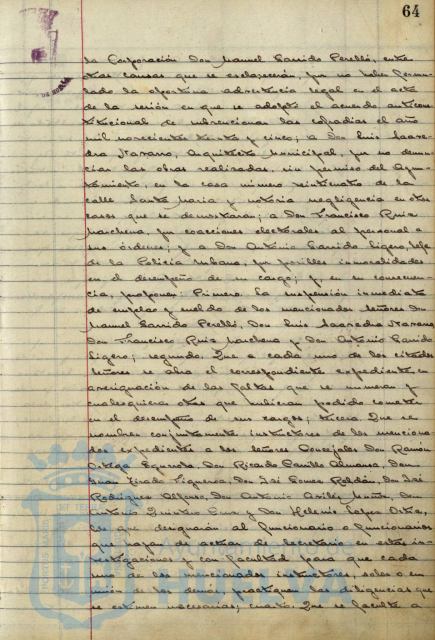 64
la Corporación Don Manuel Garrido Perelló, entre
otras causas que se esclarecerán, por no haber formu-
lado la oportuna advertencia legal en el acta
de la sesión en que se adoptó el acuerdo anticons-
titucional de subvencionar las cofradías el año
mil novecientos treinta y cinco; a Don Luis Saave-
dra Navarro, Arquitecto Municipal, por no denun-
ciar las obras realizadas, sin permiso del Ayun-
tamiento, en la casa número veinticuatro de la
calle Santa María y notoria negligencia en otros
casos que se demostrarán; a Don Francisco Ruiz
Marchena, por coacciones electorales al personal a
sus órdenes; y a Don Antonio Garrido Ligero, Jefe
de la Policía Urbana, por posibles inmoralidades
en el desempeño de su cargo; y en su consecuen-
cia, proponen: Primero. La suspensión inmediata
de empleo y sueldo de los mencionados señores Don
Manuel Garrido Perelló, Don Luis Saavedra Navarro,
Don Francisco Ruiz Marchena y Don Antonio Garrido
Ligero; segundo. Que a cada uno de los citados
señores se abra el correspondiente expediente en
averiguación de las faltas que se enumeran y
cualesquiera otras que hubieran podido cometer
en el desempeño de sus cargos; tercero. Que se
nombren conjuntamente instructores de los menciona-
dos expedientes a los señores Concejales Don Ramón
Ortega Don Ricardo Almansa, Don
Juan Tirado Figueroa, Don José Gómez Roldán, Don José
Rodríguez Alfonso, Don Antonio Avilés Muñoz, Don
Antonio Quintero y Don Helenio López Orta,
los que designarán al funcionario o funcionarios
que hayan de actuar de Secretario en estas in-
vestigaciones y con facultad para que cada
uno de los mencionados instructores, solos o en
unión de los demás, practiquen las diligencias que
se estimen necesarias; cuarto. Que se faculte a